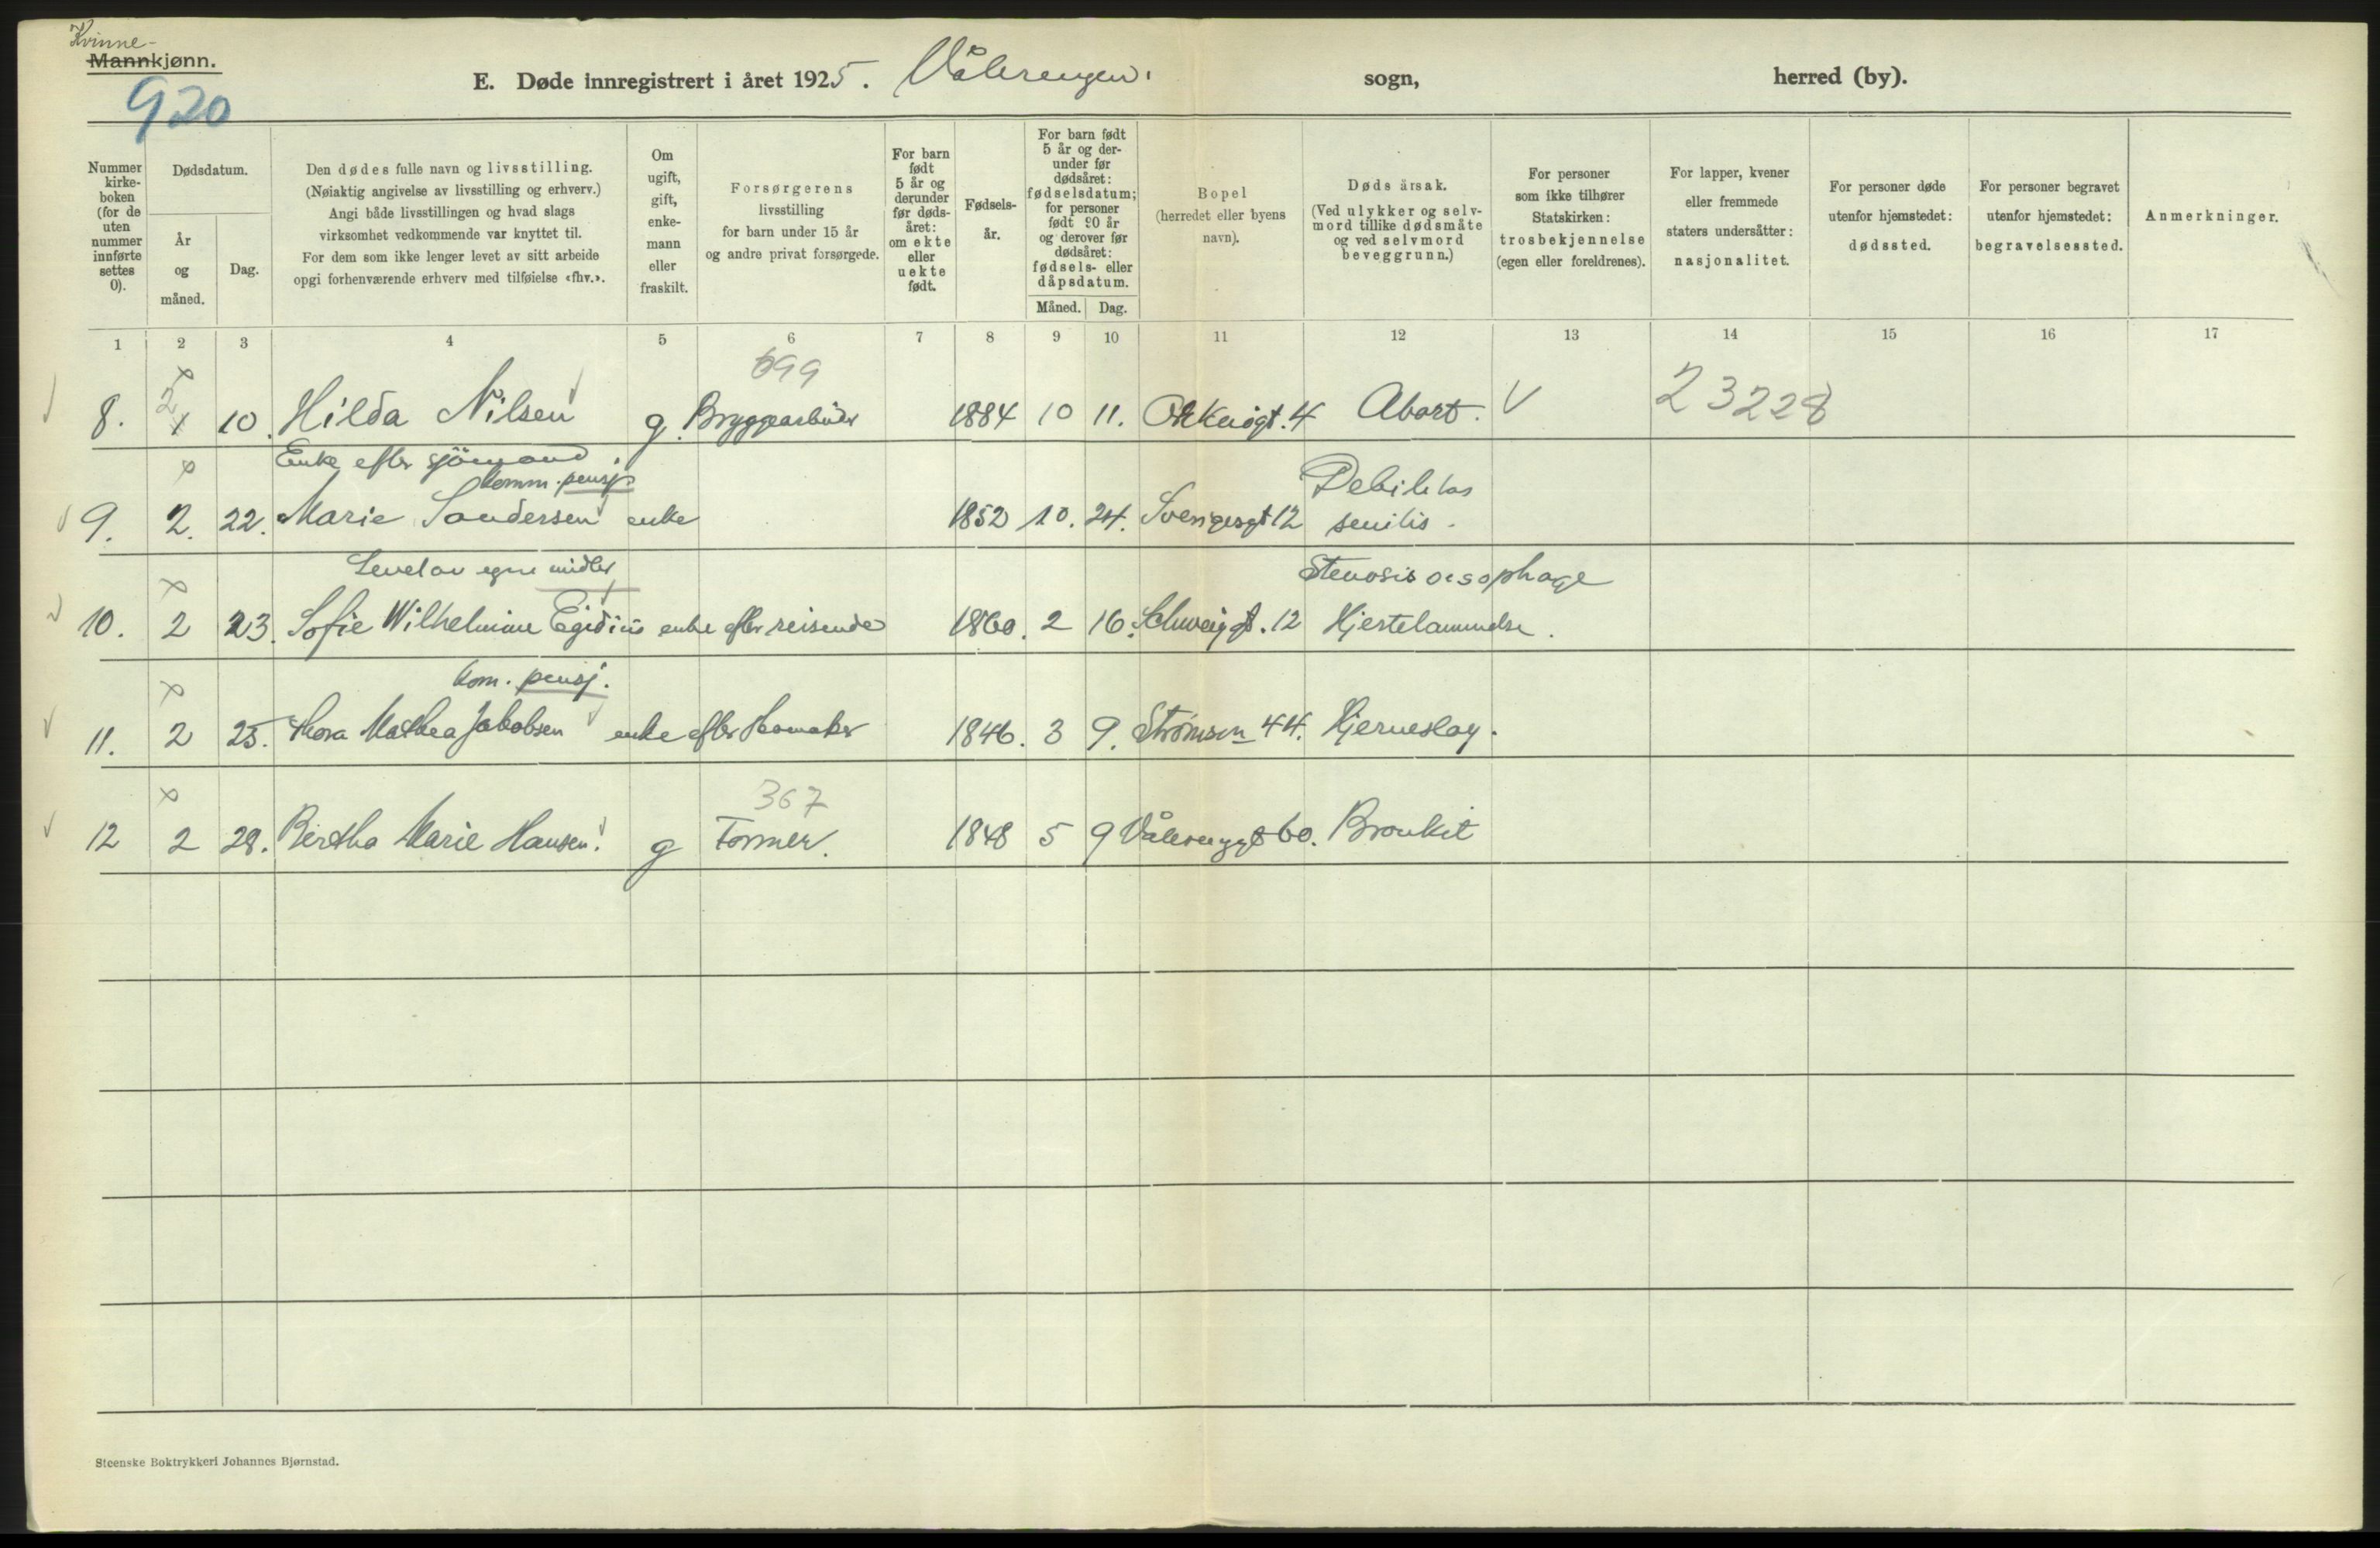 Kvinne-
Mannkjønn.
920
E. Døde innregistrert i året 1925. Vålerengen. sogn, herred (by).
Nummer kirke-boken (for de uten nummer innførte settes 0).
Dødsdatum.
År og måned.
Dag.
Den dødes fulle navn og livsstilling.
(Nøiaktig angivelse av livsstilling og erhverv.)
Angi både livsstillingen og hvad slags
virksomhet vedkommende var knyttet til.
For dem som ikke lenger levet av sitt arbeide
opgi forhenværende erhverv med tilføielse «fhv.».
Om ugift, gift, enke-mann eller fraskilt.
Forsørgerens
livsstilling
for barn under 15 år
og andre privat forsørgede.
For barn født 5 år og derunder før døds-året: om ekte eller uekte født.
Fødsels-år.
For barn født 5 år og der-under før dødsåret: fødselsdatum; for personer født 90 år og derover før dødsåret: fødsels- eller dåpsdatum.
Måned. Dag.
Bopel
(herredet eller byens navn).
Døds årsak.
(Ved ulykker og selv-mord tillike dødsmåte og ved selvmord beveggrunn.)
For personer som ikke tilhører Statskirken: trosbekjennelse (egen eller foreldrenes).
For lapper, kvener eller fremmede staters undersåtter: nasjonalitet.
For personer døde utenfor hjemstedet: dødssted.
For personer begravet utenfor hjemstedet: begravelsessted.
Anmerkninger.
1 2 3 4 5 6 7 8 9 10 11 12 13 14 15 16 17
699
8. 2 1 10. Hilda Nilsen g. Bryggearbeider 1884 10 11. 4 Abort. V 23228
Enke efter sjömand.
Komm. pensj.
9. 2. 22. Marie Sandersen enke 1852 10. 24. Sverigesgt 12 Debilitas senilis.
Levet av egne midler
Stenosis oesophage
10. 2 23. Sofie Wilhelmine Egidius enke efter reisende 1860. 2 16. Schweigg. 12 Hjertelammelse.
kom. pensj.
11. 2 25. Thora Mathea Jakobsen enke efter skomaker 1846. 3 9. Strømsvn 44. Hjerneslag.
367
12 2 28. Birtha Marie Hansen. g Former. 1848 5 9 Vålerenggt 60. Bronkit
Steenske Boktrykkeri Johannes Bjørnstad.